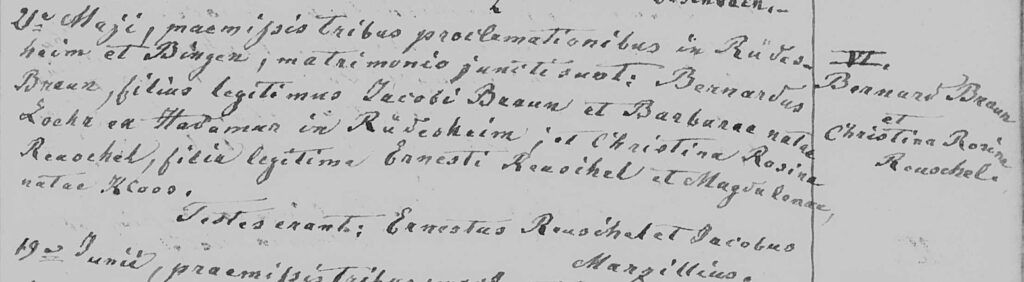 21ª Maji, praemissis tribus proclamationibus in Rüdes-
heim et Bingen, matrimonio juncti sunt: Bernardus
Braun, filius legitimus Jacobi Braun et Barbarae natae
Loehr ex Hadamar in Rüdesheim; et Christina Rosina
Reuschel, filia legitima Ernesti Reuschel et Magdalenae,
natae Kloos.
Testes erant: Ernestus Reuschel et Jacobus
Marzillius.
19ª Junii, praemissis tribus
VI.
Bernard Braun
et
Christina Rosina
Reuschel.